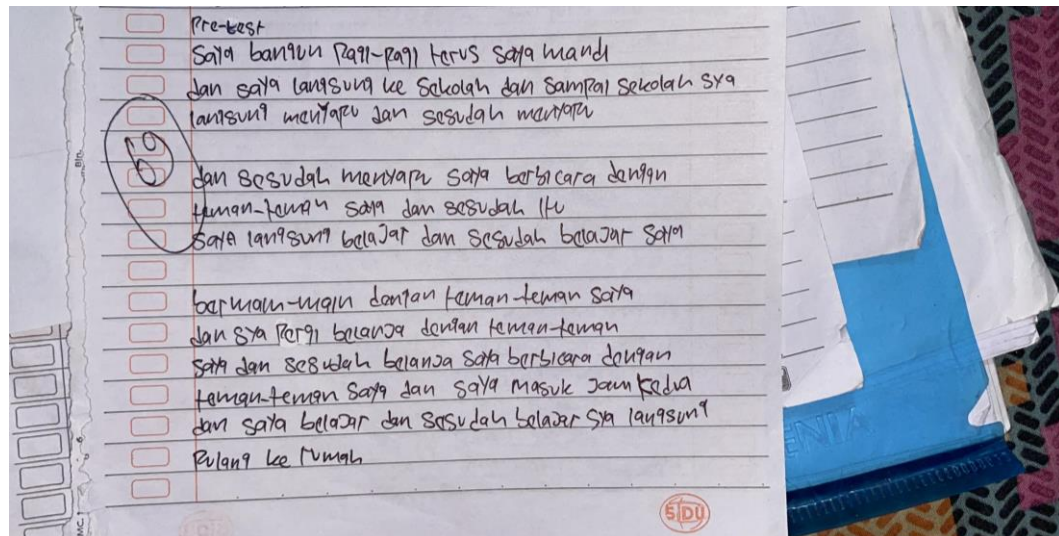 Pre-test
Saya bangun Pagi-Pagi terus saya mandi
dan saya langsung ke Sekolah dan Sampai Sekolah sya
langsung menyapu dan sesudah menyapu
69
dan sesudah menyapu saya berbicara dengan
teman-teman saya dan sesudah itu
saya langsung belajar dan sesudah belajar saya
bermain-main dengan teman-teman saya
dan sya Pergi belanja dengan teman-teman
saya dan sesudah belanja saya berbicara dengan
teman-teman saya dan saya masuk Jam kedua
dan saya belajar dan sesudah belajar sya langsung
Pulang ke rumah
SIDU
ENIA